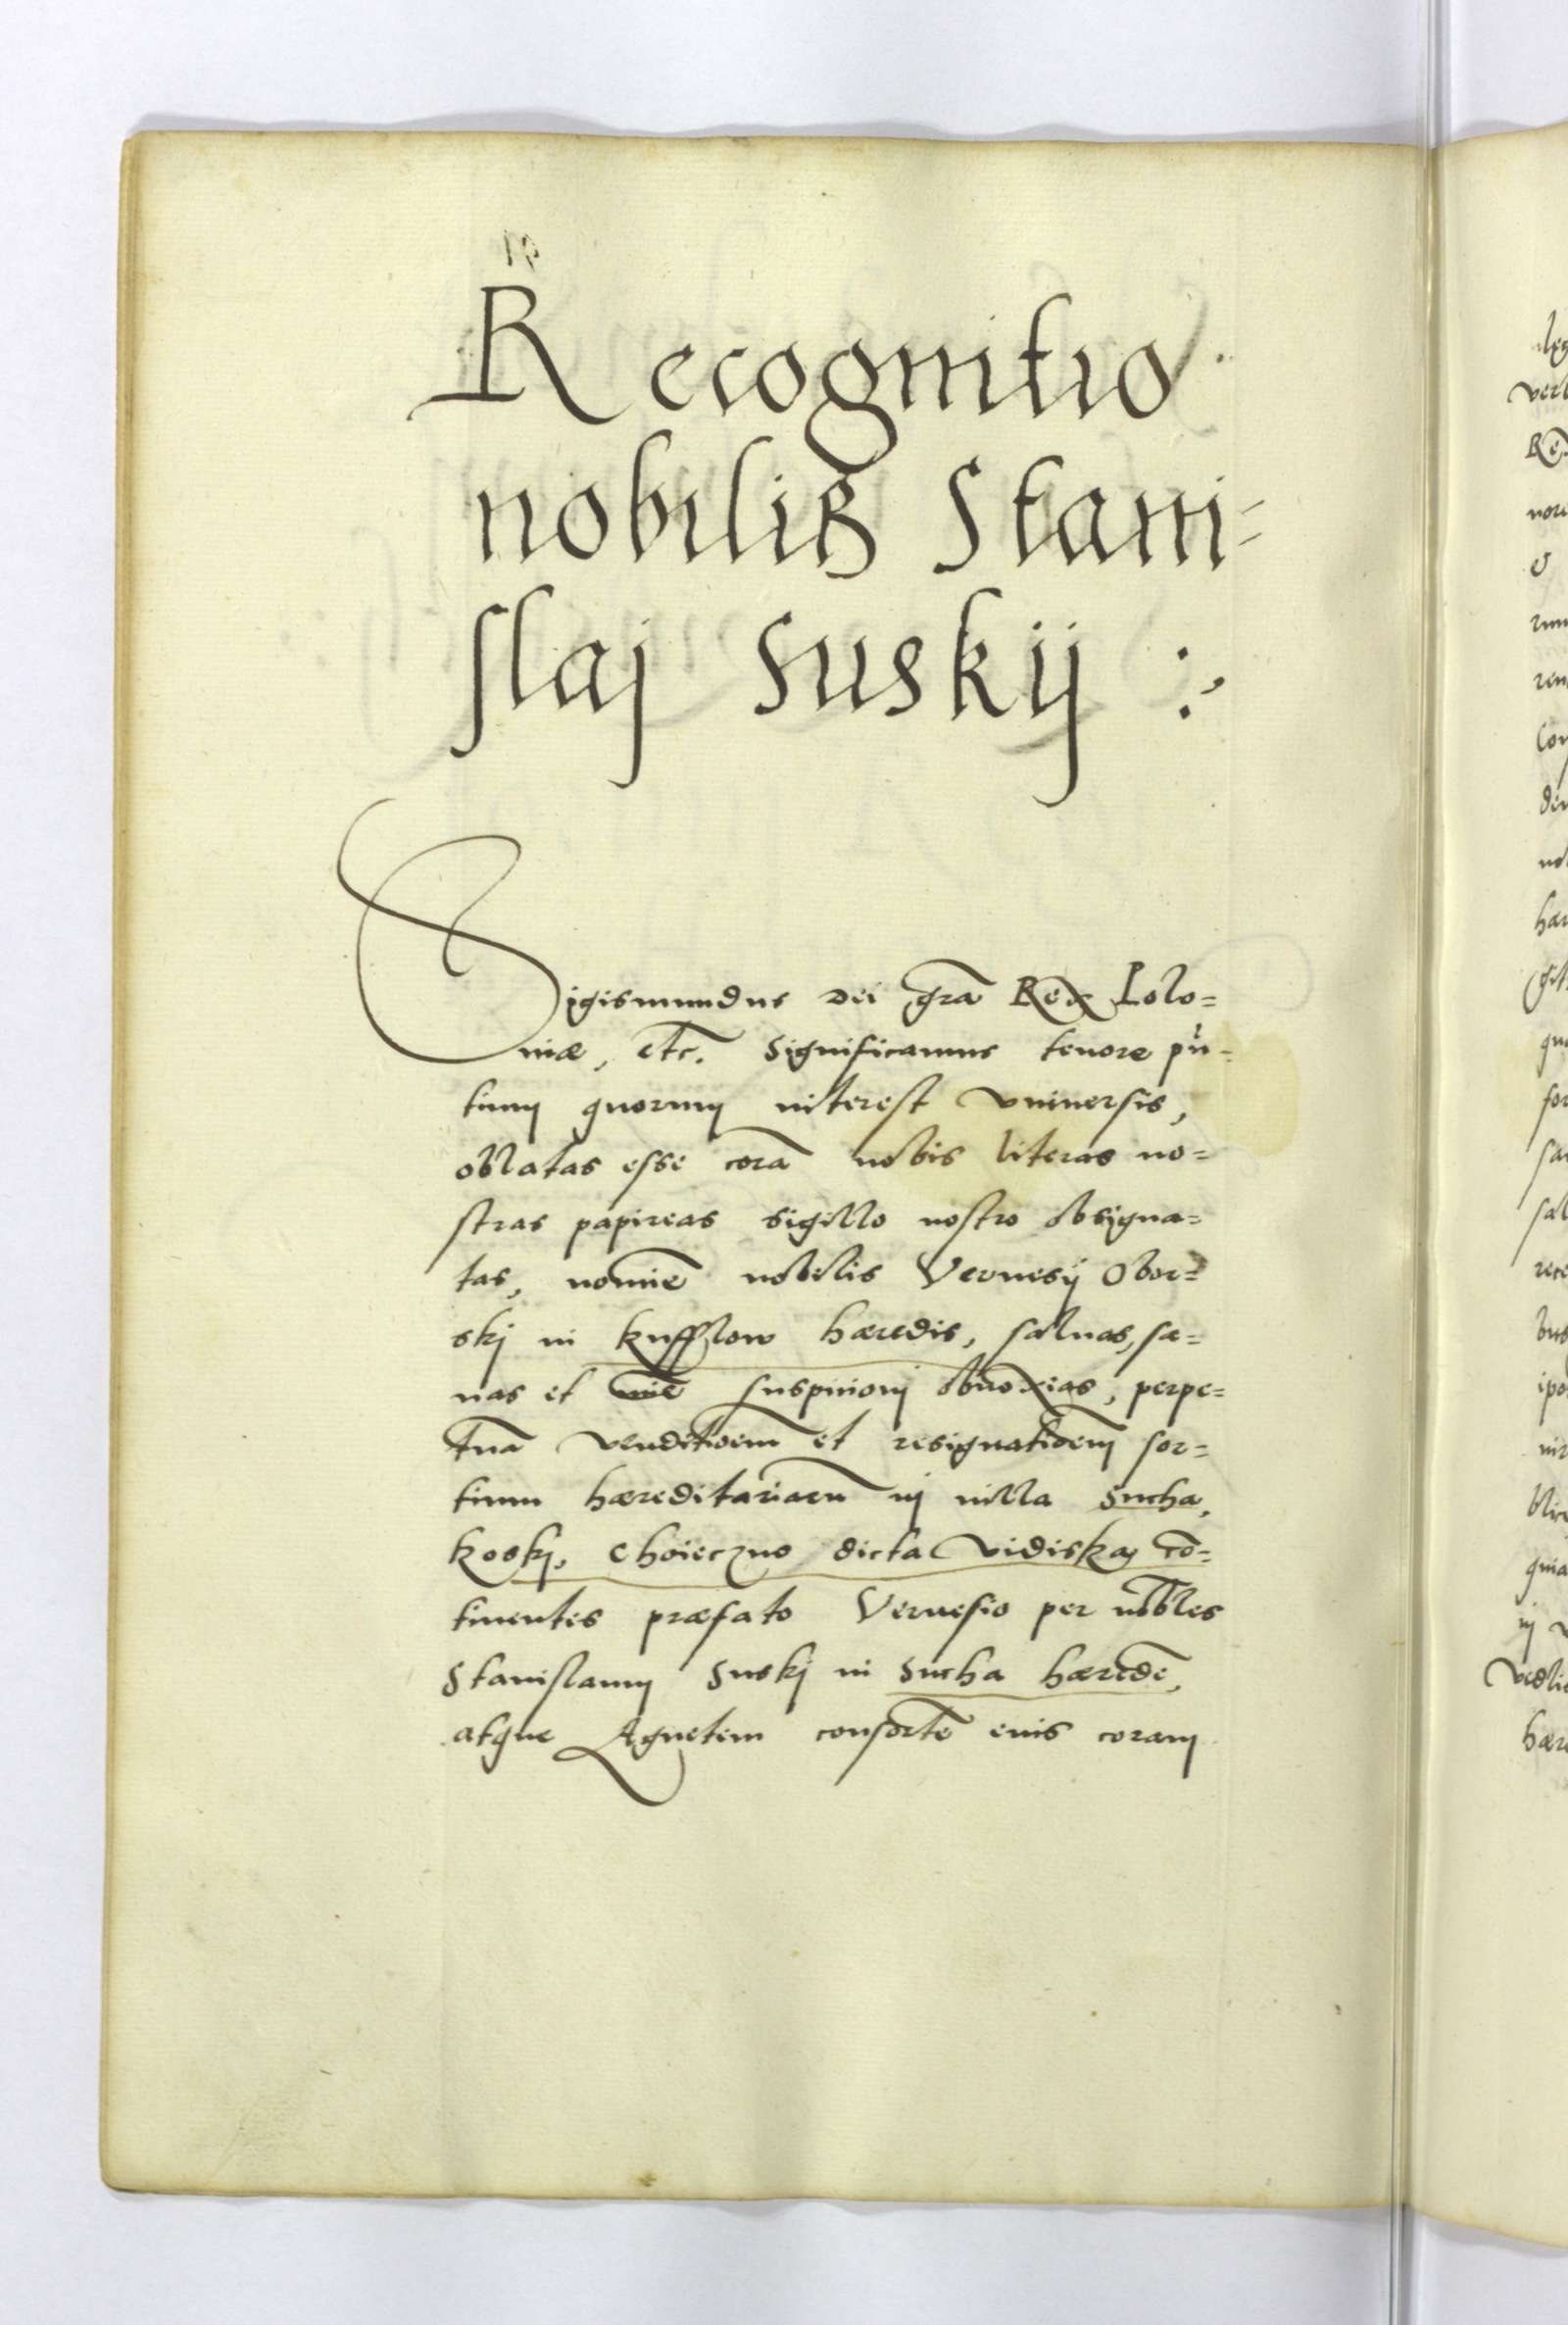 Recognitio
nobilis Stani=
slaj Suskij :
Sigismundus Dei gra Rex Polo=
niæ, etc. Significamus tenore pn=
tium quorum interest vniuersis,
oblatas esse cora nobis literas no=
stras papireas sigillo nostro obsigna=
tas, nomie nobilis Vernesij Obor=
skj in kufflow hæredis, saluas, sa=
nas et suspitionj obnoxias, perpe=
tua venditioem et resignatioem sor=
tium hæreditariaru in villa Sucha,
koskj, Choieczno dicta Vidiska, co=
tinentes præfato Vernesio per nobles
Stanislaum Suskj in Sucha hærede,
atque Agnetem consorte eius coram